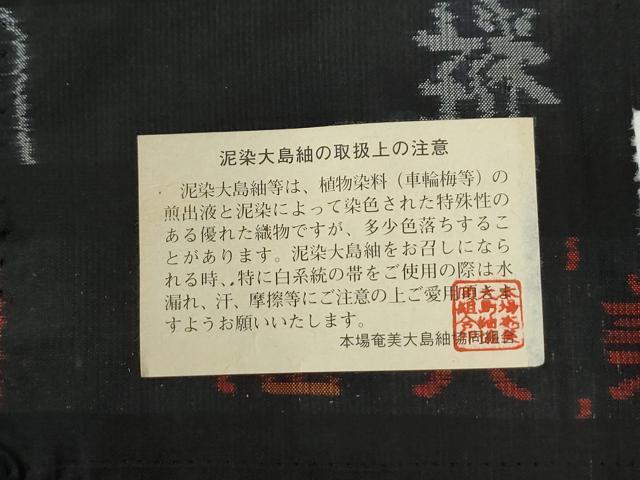 泥染大島紬の取扱上の注意
泥染大島紬等は、植物染料（車輪梅等）の
煎出液と泥染によって染色された特殊性の
ある優れた織物ですが、多少色落ちするこ
とがあります。泥染大島紬をお召しになら
れる時、特に白系統の帯をご使用の際は水
漏れ、汗、摩擦等にご注意の上ご愛用頂きま
すようお願いいたします。
本場奄美大島紬協同組合